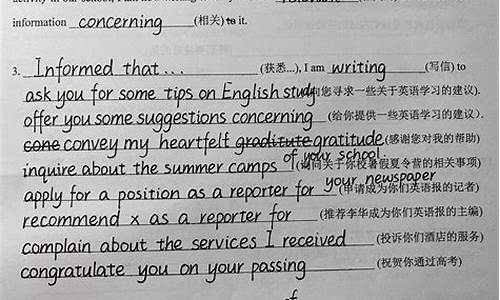 information concerning (相关) to it.
3. Informed that... (获悉...), I am writing (写信) to
ask you for some tips on English study 向您寻求一些关于英语学习的建议).
offer you some suggestions concerning (给你提供一些英语学习的建议).
cone convey my heartfelt graditute gratitude (感谢您对我的帮助)
inquire about the summer camps of your school. (询问关于你校暑假夏令营的相关事项)
apply for a position as a reporter for your newspaper (申请成为你们英语报的记者)
recommend x as a reporter for (推荐李华成为你们英语报的主编)
complain about the services I received (投诉你们酒店的服务)
congratulate you on your passing (祝贺你通过高考)
of